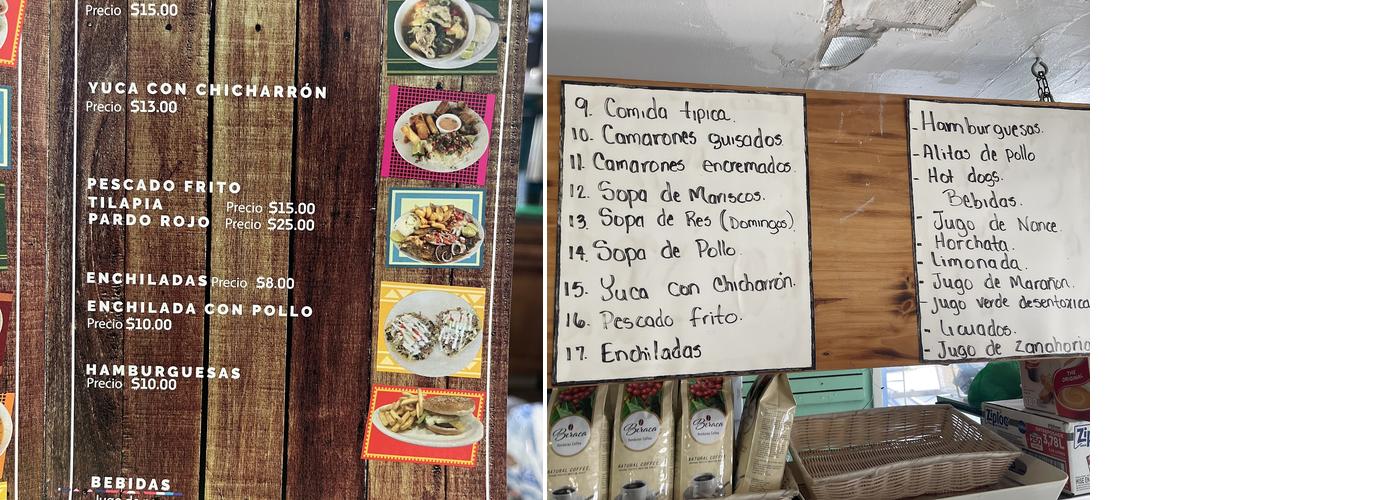 Precio $15.00
YUCA CON CHICHARRÓN
Precio $13.00
PESCADO FRITO
TILAPIA Precio $15.00
PARDO ROJO Precio $25.00
ENCHILADAS Precio $8.00
ENCHILADA CON POLLO
Precio $10.00
HAMBURGUESAS
Precio $10.00
BEBIDAS
9. Comida tipica.
10. Camarones guisados
11. Camarones encremados.
12. Sopa de Mariscos.
13. Sopa de Res (Domingos).
14. Sopa de Pollo.
15. Yuca con Chicharrón.
16. Pescado frito.
17. Enchiladas
- Hamburguesas.
- Alitas de pollo
- Hot dogs.
Bebidas.
- Jugo de Nance.
- Horchata.
- Limonada.
- Jugo de Marañon.
- jugo verde desentoxica
- Licuados.
- Jugo de Zanahoria
Beraca
Honduras Coffee
NATURAL COFFEE
Beraca
Honduras Coffee
NATURAL COFFEE
Beraca
Honduras Coffee
NATURAL COFFEE
THE ORIGINAL
Ziploc
3,78L